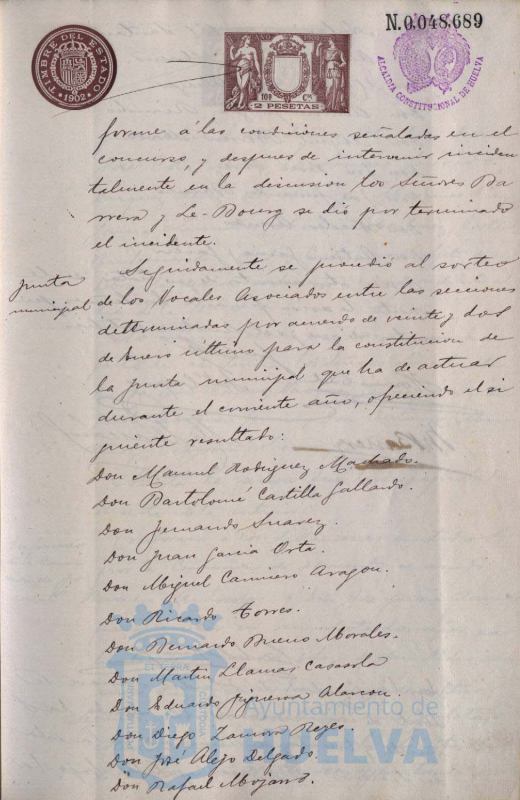 N.0.048,689
TIMBRE DEL ESTADO
1902
100 Cs
2 PESETAS
ALCALDIA CONSTITUCIONAL DE HUELVA
forme á las condiciones señaladas en el
concurso, y despues de intervenir inciden
talmente en la discusion los Señores Ba
rrera y Le-Bourg se dió por terminado
el incidente.
Junta
municipal
Seguidamente se procedió al sorteo
de los Vocales Asociados entre las secciones
determinadas por acuerdo de veinte y dos
de Enero ultimo para la constitucion de
la Junta municipal que ha de actuar
durante el corriente año, ofreciendo el si
guiente resultado:
Don Manuel Rodriguez Machado.
Don Bartolomé Castilla Gallardo.
Don Fernando Suarez.
Don Juan Garcia Orta.
Don Miguel Caminero Aragon.
Don Ricardo Torres.
Don Bernardo Bueno Morales.
Don Martin Llamas Casasola
Don Eduardo Figueroa Alarcon.
Don Diego Zamora Reyes.
Don Jose Alejo Delgado.
Don Rafael Mojarro.
Ayuntamiento de
HUELVA